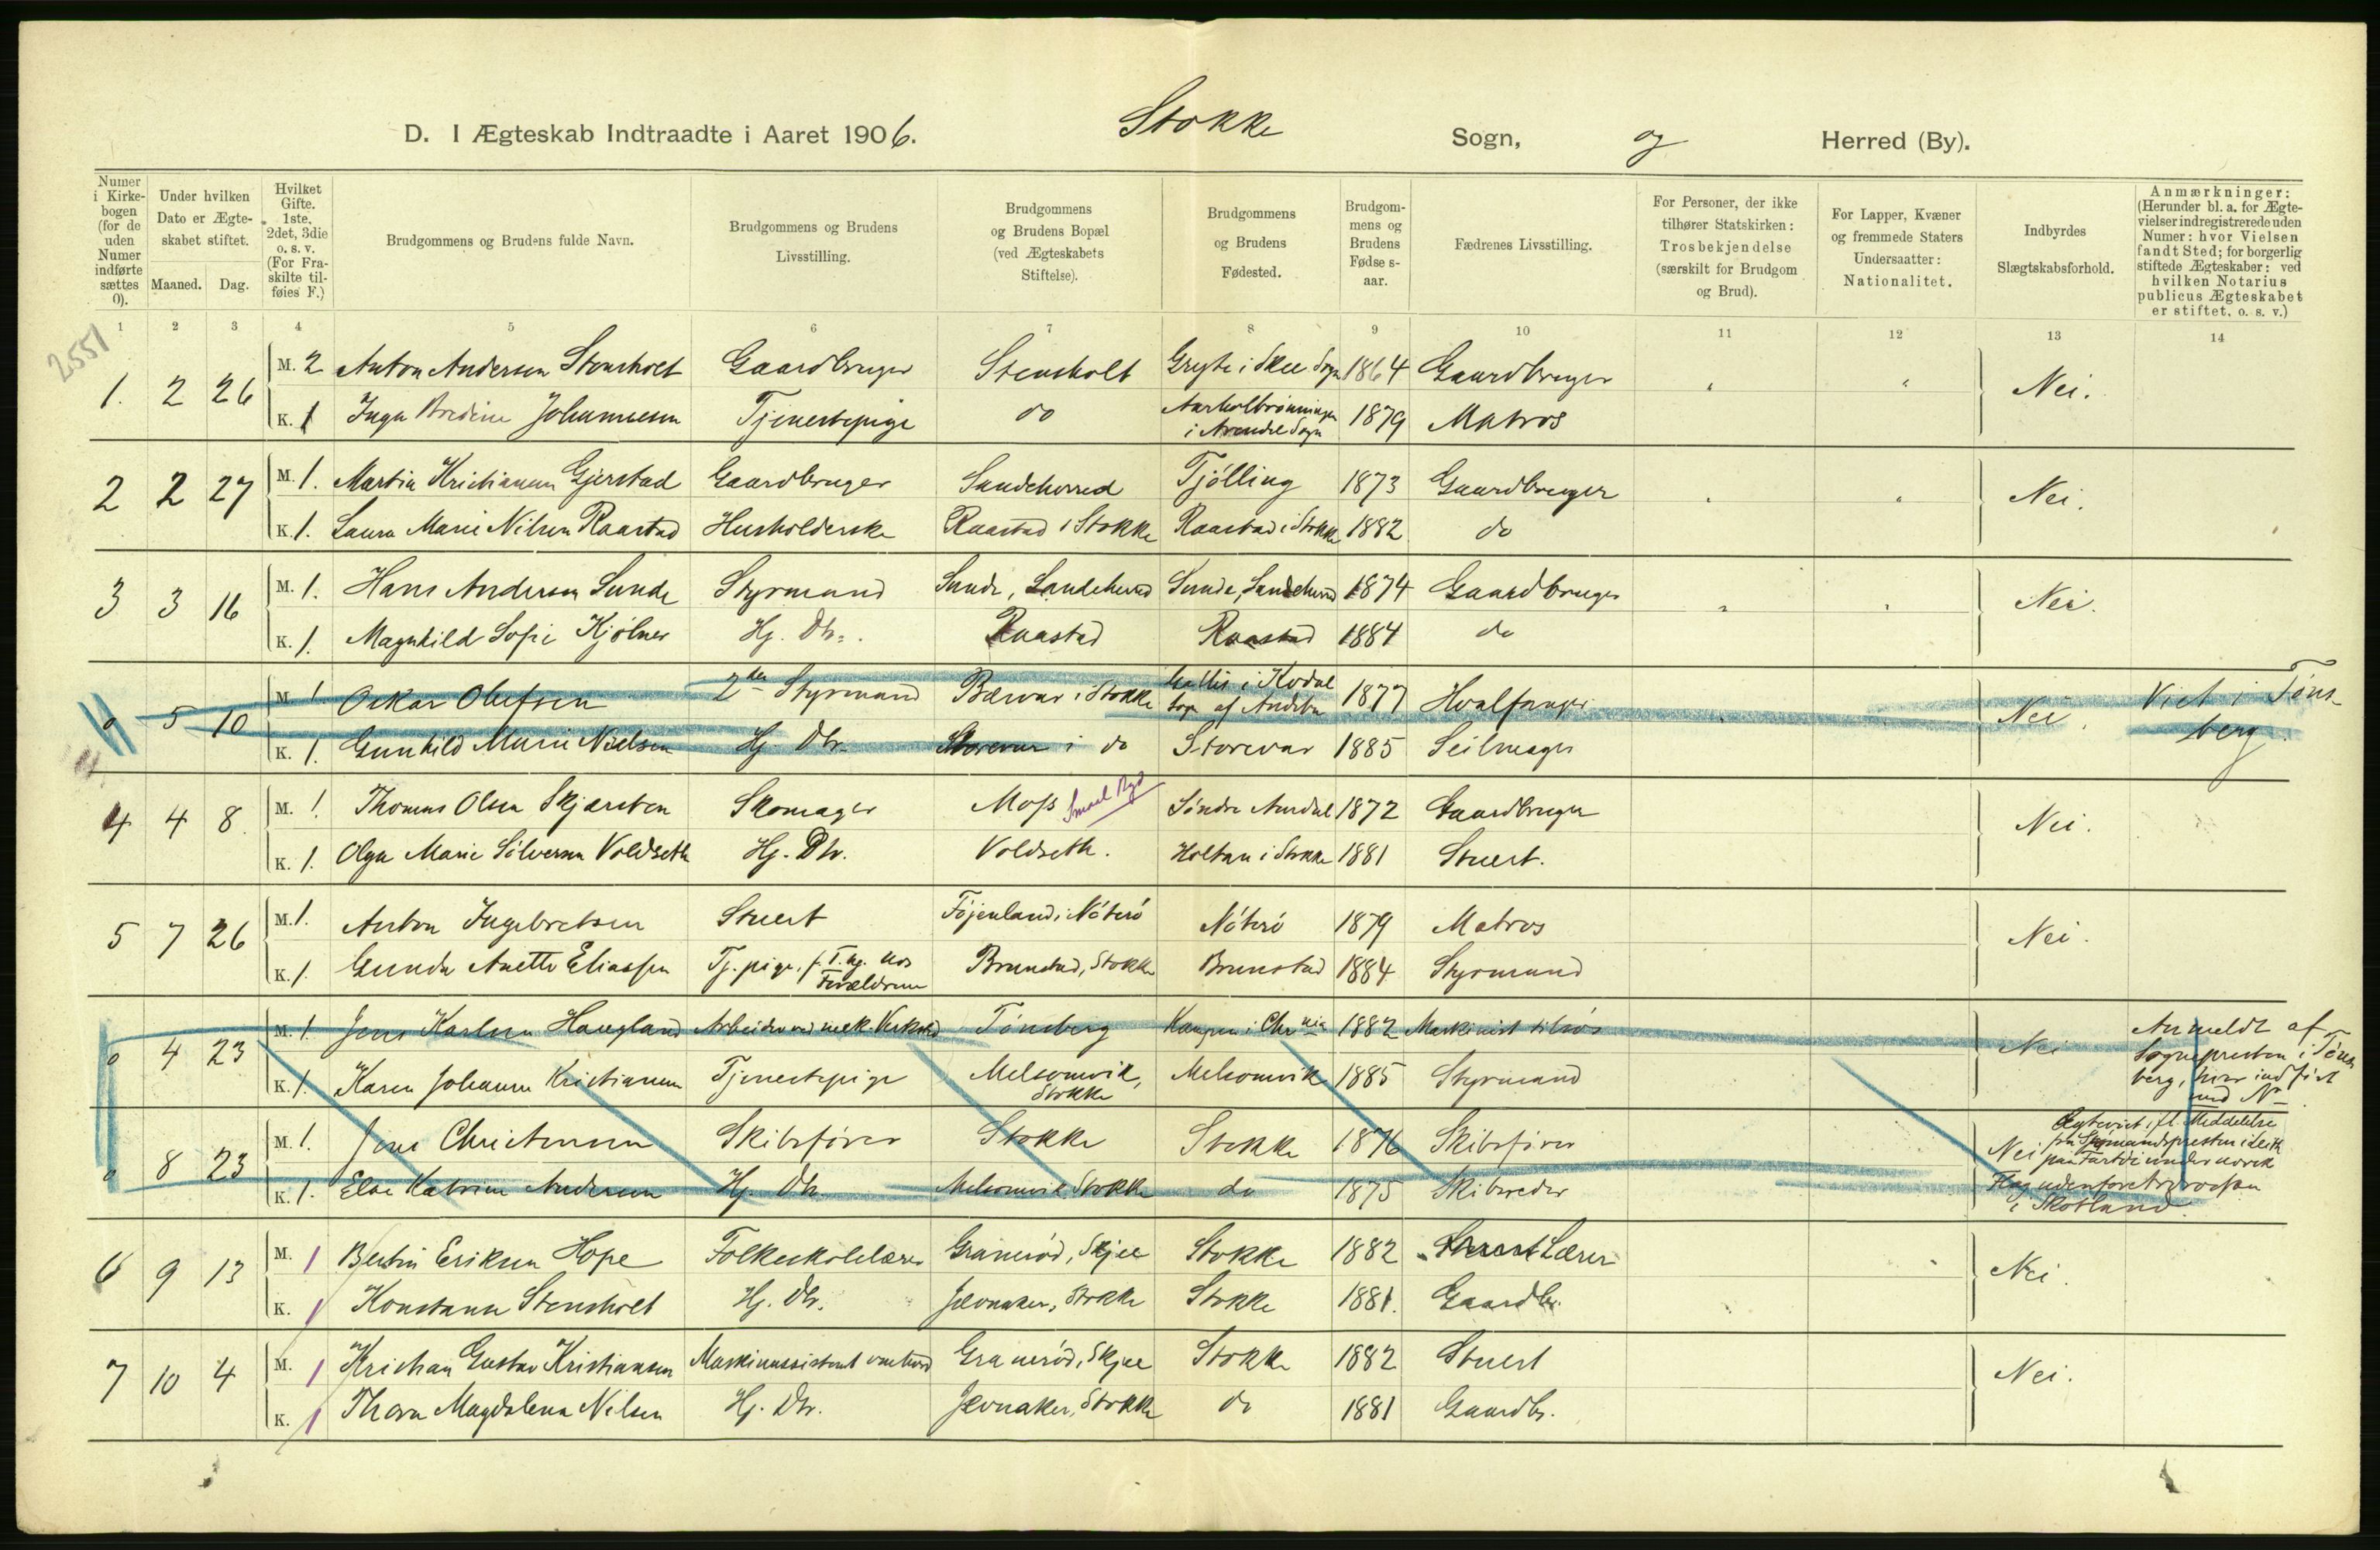 D. I Ægteskab Indtraadte i Aaret 1906. Stokke Sogn, og Herred (By).
Numer i Kirkebogen (for de uden Numer indførte sættes 0).
Under hvilken Dato er Ægteskabet stiftet.
Maaned. Dag.
Hvilket Gifte. 1ste, 2det, 3die o. s. v. (For Fraskilte tilføies F.)
Brudgommens og Brudens fulde Navn.
Brudgommens og Brudens Livsstilling.
Brudgommens og Brudens Bopæl (ved Ægteskabets Stiftelse).
Brudgommens og Brudens Fødested.
Brudgommens og Brudens Fødselsaar.
Fædrenes Livsstilling.
For Personer, der ikke tilhører Statskirken: Trosbekjendelse (særskilt for Brudgom og Brud).
For Lapper, Kvæner og fremmede Staters Undersaatter: Nationalitet.
Indbyrdes Slægtskabsforhold.
Anmærkninger: (Herunder bl. a. for Ægtevielser indregistrerede uden Numer: hvor Vielsen fandt Sted; for borgerlig stiftede Ægteskaber: ved hvilken Notarius publicus Ægteskabet er stiftet, o. s. v.)
1 2 3 4 5 6 7 8 9 10 11 12 13 14
2551
1. 2 26 M. 2 Anton Andersen Stensholt Gaardbruger Stensholt i Skee Sogn 1864 Gaardbruger " " Nei.
K. 1 Inga Bredine Johannesen Tjenestepige do i Arendal Sogn 1879 Matros
2 2 27 M. 1. Martin Kristiansen Gjerstad Gaardbruger Sandeherred Tjölling 1873 Gaardbruger " " Nei.
K. 1. Laura Marie Nilsen Raastad Husholderske Raastad i Stokke Raastad i Stokke 1882 do
3 3 16 M. 1. Hans Andersen Sunde Styrmand Sunde, Sandeherred Sunde, Sandeherred 1874 Gaardbruger " " Nei.
K. 1. Magnhild Sofie Kjölner Hj. Dtr. Raastad Raastad 1884 do
0 5 10 M. 1 Oskar Olufsen 2den Styrmand Bærvar i Stokke i Kodal Sogn af Andebu 1877 Hvalfanger Nei. Viet i Tönsberg.
K. 1. Gunhild Marie Nielsen Hj. Dtr. Storevar i do Storevar 1885 Seilmager
4 4 8 M. 1. Thomas Olsen Skjærsten Skomager Moss Søndre Aurdal 1872 Gaardbruger Nei.
K. 1. Olga Marie Sølversen Voldseth Hj. Dtr. Voldseth. Holtan i Stokke 1881 Stuert.
5 7 26 M. 1. Anton Ingebretsen Stuert Föjenland i Nöterö Nöterö 1879 Matros Nei.
K. 1. Gunda Anette Eliassen Tj. pige, f. T. hos Forældrene Brunstad, Stokke Brunstad 1884 Styrmand
0 4 23 M. 1. Jens Karlsen Haugland Arbeider ved mek. Verksted Tönsberg Kampen i Chr.nia 1882 Maskinist tilsøs Nei Anmeldt af Sognepresten i Tönsberg, hvor indført med No
K. 1. Karen Johanne Kristiansen Tjenestepige Melsomvik, Stokke Melsomvik 1885 Styrmand
0 8 23 M. 1. Jens Christensen Skibsfører Stokke Stokke 1876 Skibsfører Nei Ægteviet ifl. Meddelelse fra Sjømandspresten i Leith paa Fartøi under norsk Flag udenfor i Skotland.
K. 1. Elve Katrine Andersen Hj. Dtr. Melsomvik Stokke do 1875 Skibsreder
6 9 13 M. 1 Bertin Eriksen Hope Folkeskolelærer Granerød, Skjee Stokke 1882 Lærer Nei.
K. 1 Konstanse Stensholt Hj. Dtr. Jevnaker, Stokke Stokke 1881. Gaardbr.
7 10 4 M. 1 Kristian Gustav Kristiansen Maskinassistent ombord Granerød, Skjee Stokke 1882 Stuert Nei.
K. 1 Thora Magdalena Nilsen Hj. Dtr. Jevnaker, Stokke do 1881 Gaardbr.